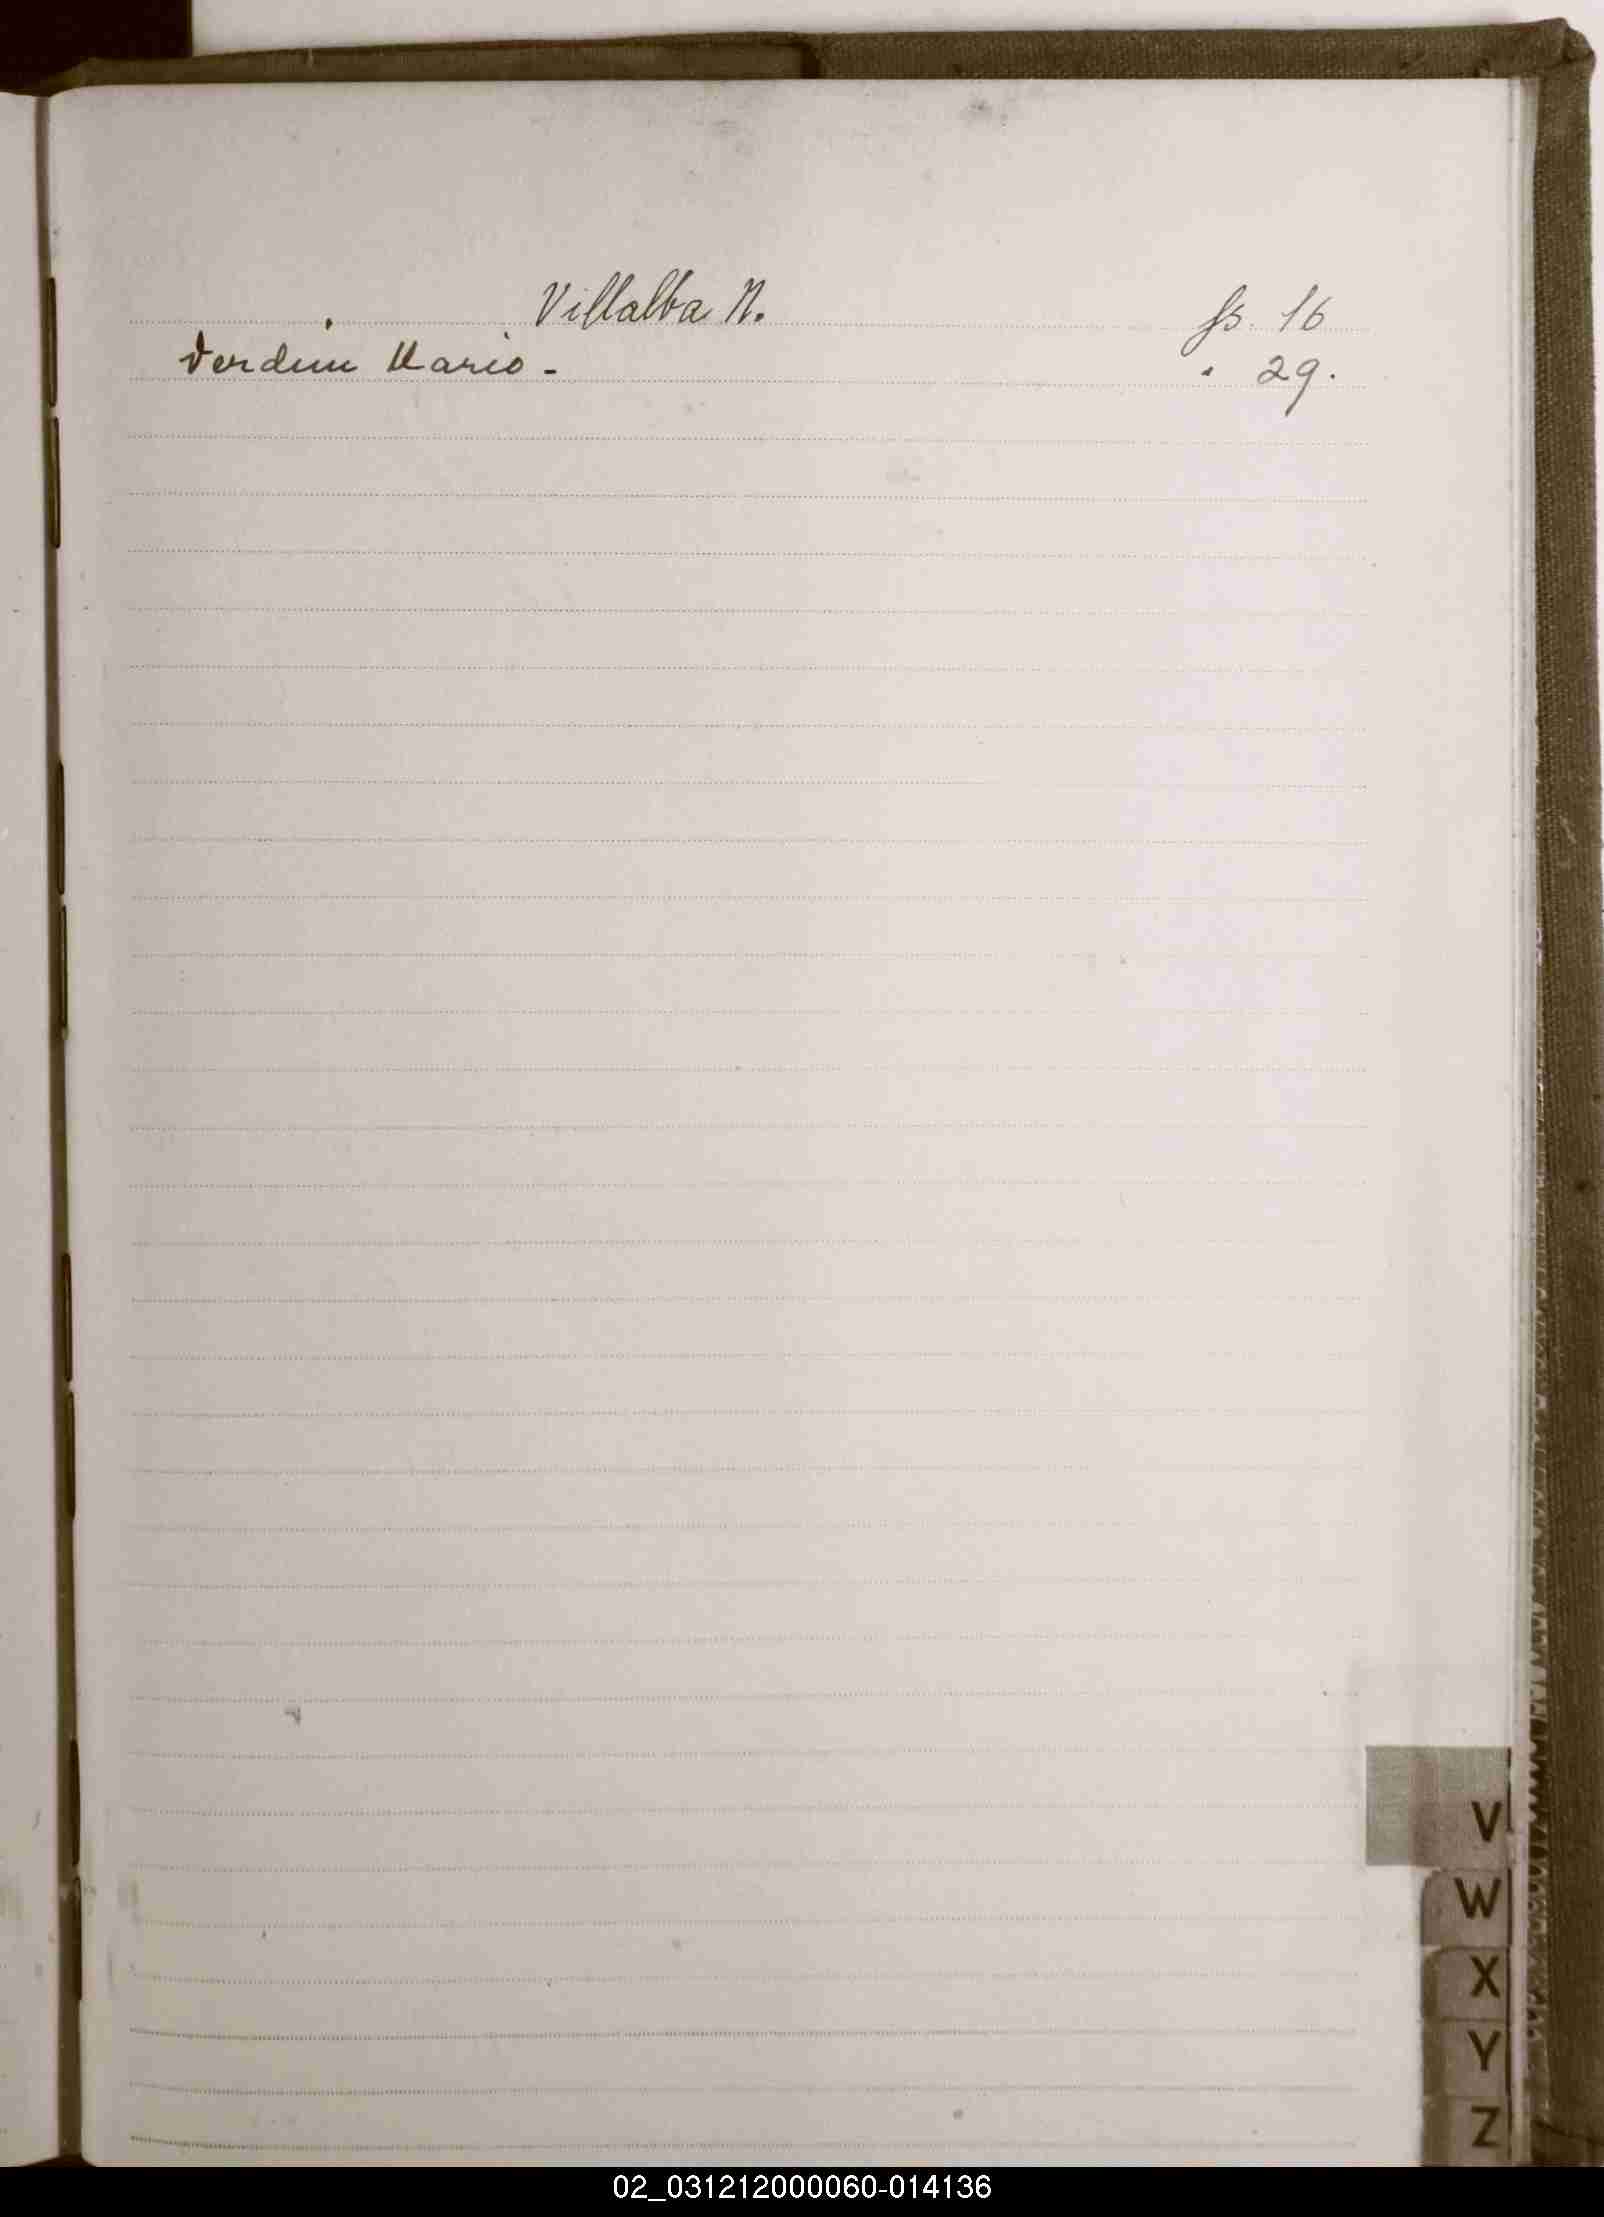 Villalba N. fs. 16
Verdini Mario - " 29.
V
W
X
Y
Z
02_031212000060-014136